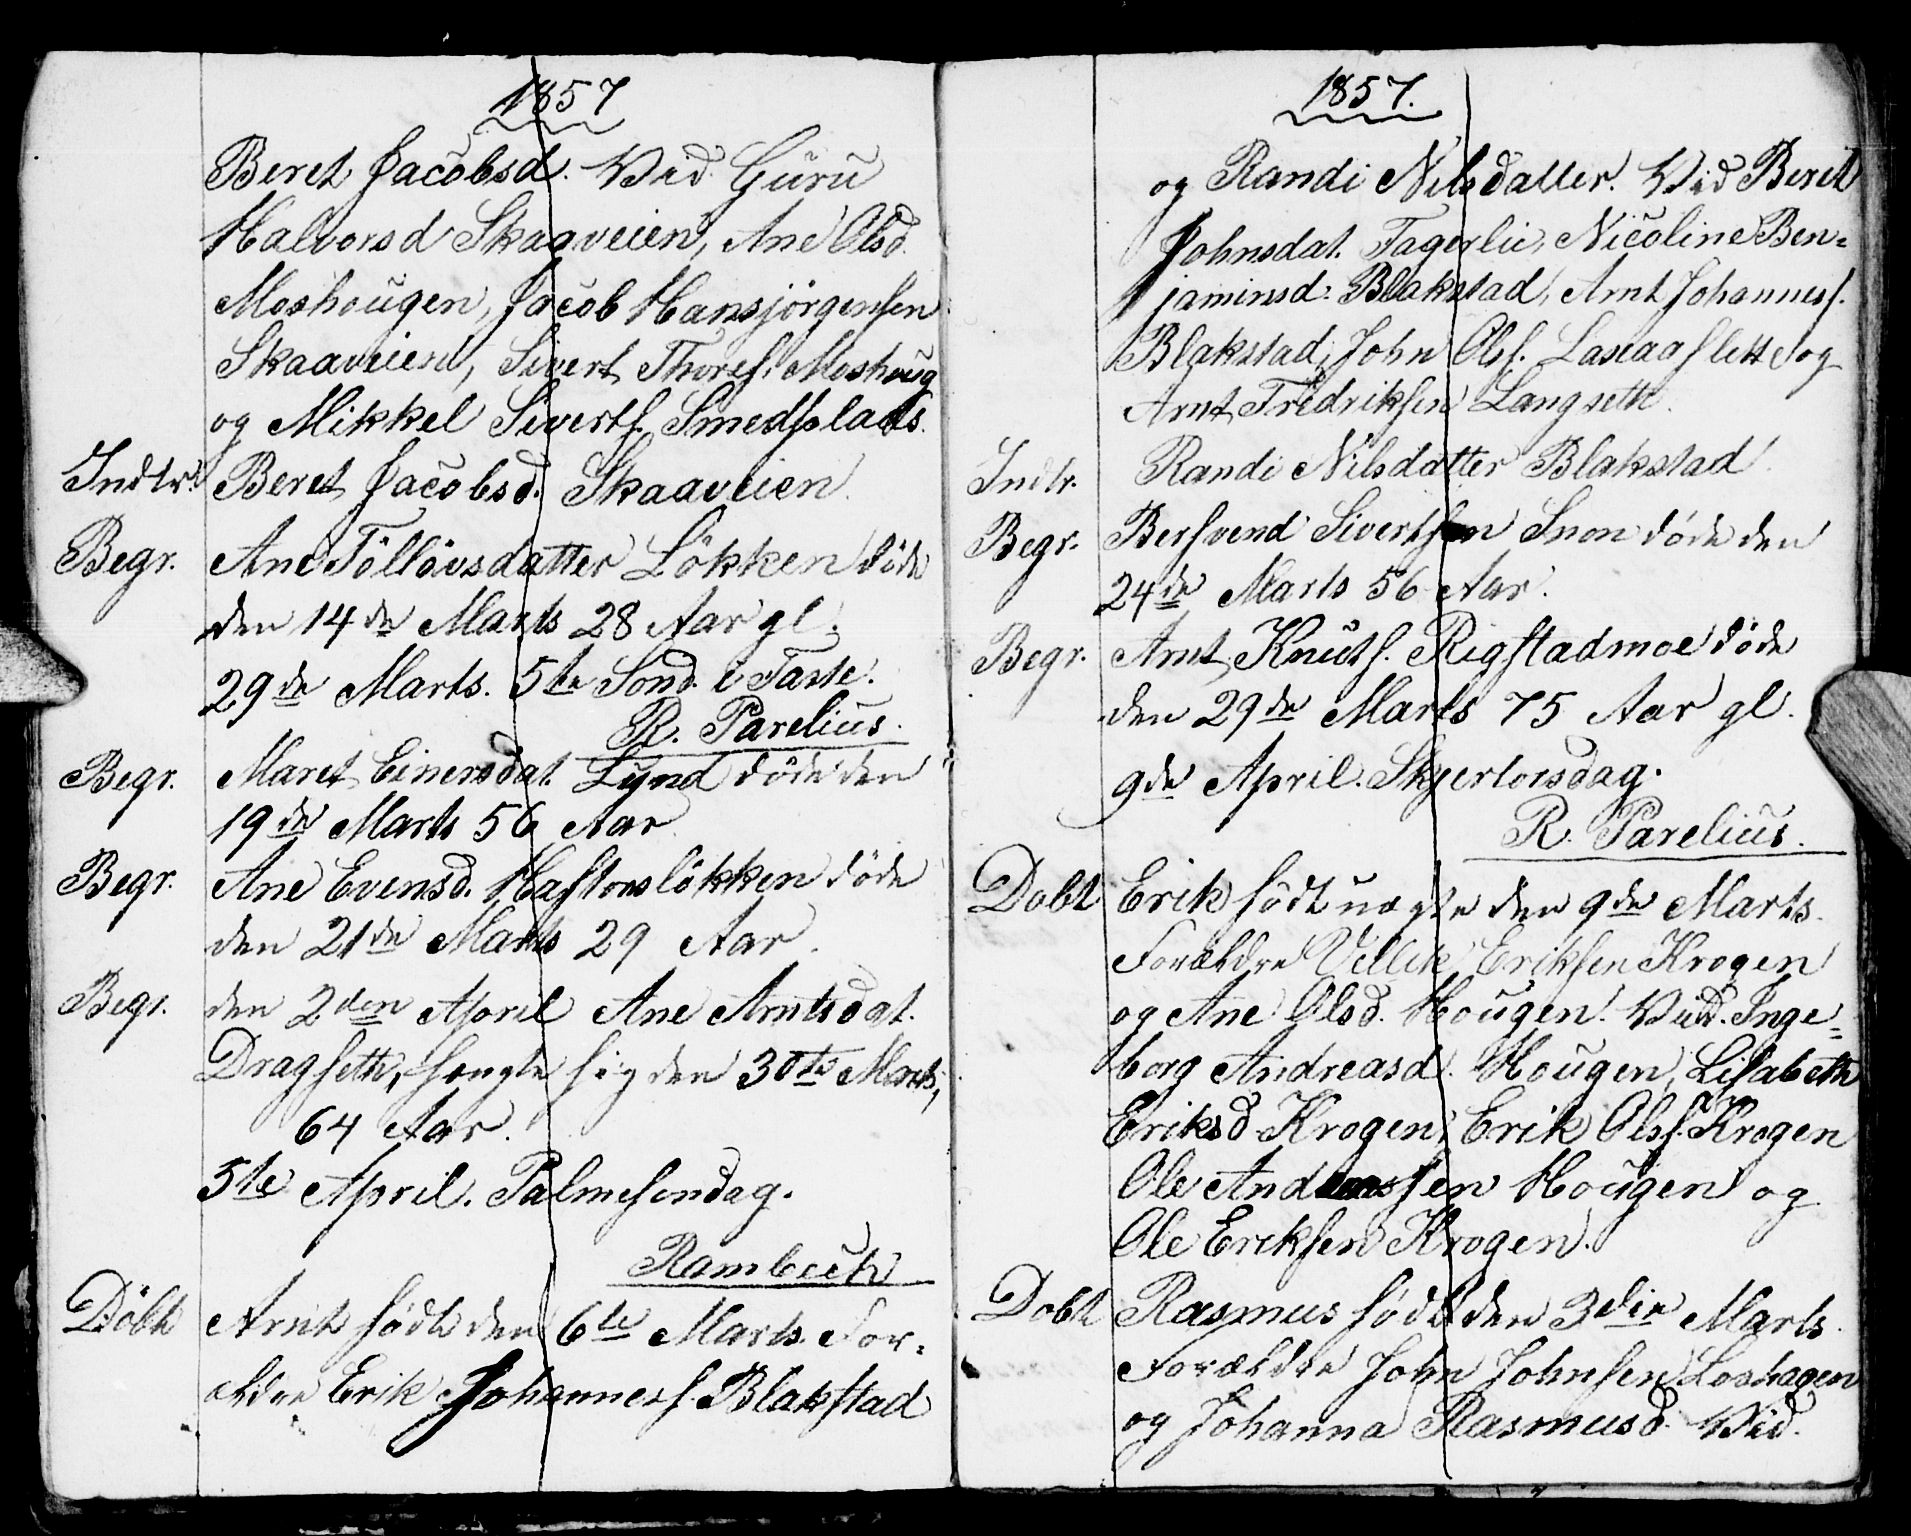 1857
Beret Jacobsd. Vid. Guru
Halvorsd Skaaveien, Ane Olsd.
Moshougen, Jacob Hansjörgensen
Skaaveien, Sivert Thores. Moshoug
og Mikkel Siverts. Smedsplads.
Indtr. Beret Jacobsd. Skaaveien.
Begr. Ane Föllövsdatter Lökken döde
den 14de Marts 28 Aar gl.
29de Marts. 5te Sond. i Faste.
R. Parelius.
Begr. Maret Einersdat. Lynd döde den
19de Marts 56 Aar
Begr. Ane Evensd. Haftorslökken döde
den 21de Marts 29 Aar.
Begr. den 2den April Ane Arntsdat.
Dragseth, hængte sig den 30te Marts,
64 Aar.
5te April. Palmesondag.
Rambech
Döbt Arnt födt den 6te Marts. For-
ældre Erik Johanness. Blakstad
1857.
og Randi Nilsdatter. Vid Beret
Johnsdat. Fagerlie, Nicoline Ben=
jaminsd: Blakstad, Arnt Johanness.
Blakstad, John Ols. Lasiaaslett og
Arnt Fredriksen Langseth.
Indtr. Randi Nilsdatter Blakstad.
Begr. Bersvend Sivertsen Snon döde den
24de Marts 56 Aar.
Begr. Arnt Knuts. Rigstadmoe döde
den 29de Marts 75 Aar gl.
9de April. Skjertorsdag.
R. Parelius.
Dobt Erik födt uægte den 9de Marts.
Forældre Vellik Eriksen Krogen
og Ane Olsd. Hougen. Vid. Inge=
borg Andreasd. Hougen, Lisabeth
Eriksd Krogen, Erik Ols. Krogen
Ole Andreassen Hougen og
Ole Eriksen Krogen.
Dobt Rasmus födt den 3die Marts.
Forældre John Johnsen Loshagen
og Johanna Rasmusd. Vid.